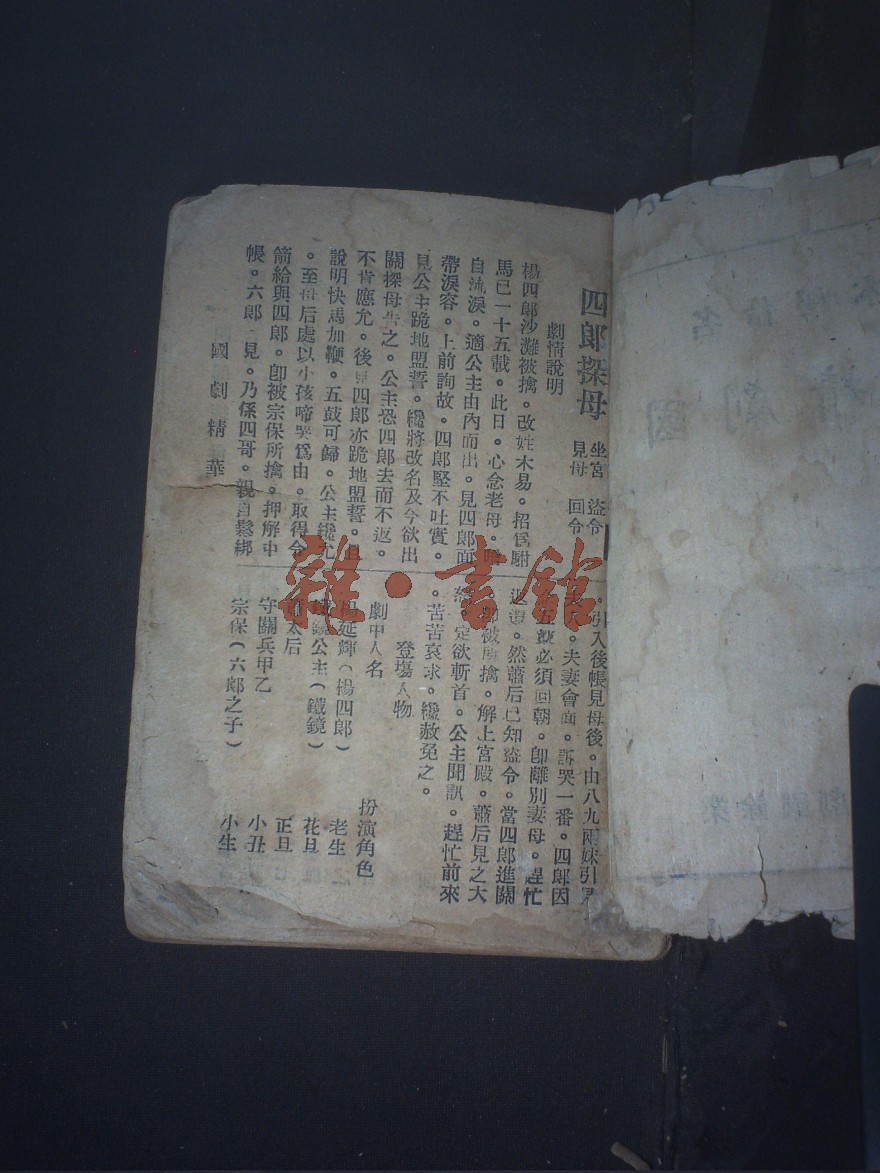 四郎探母 坐宮 盜令
見母 回令
劇情說明
楊四郎沙灘被擒。改姓木易。招爲駙
馬已一十五載。此日。心念老母。
自流淚。適公主由內而出。見四郎面
帶淚容。上前詢故。四郎堅不吐實。
見公主跪地盟誓。纔將改名及今欲出
關探母告之。公主恐四郎去而不返。
不肯應允。後見四郎亦跪地盟誓。且
說明快馬加鞭。五鼓可歸。公主纔允
。至母后處以小孩啼哭爲由。取得令
箭給與四郎。卽被宗保所擒。押解中
帳。六郎一見。乃係四哥。親自鬆綁
。引入後帳見母後。由八九兩妹引
。夫妻會面。訴哭一番。四郎因
五鼓必須回朝。卽離別妻母。趕忙
。然蕭后已知盜令。當四郎進關
卽被所擒。解上宮殿。蕭后見之大
怒。定欲斬首。公主聞訊。趕忙前來
。苦苦哀求。纔赦免之。
登塲人物
劇中人名 扮演角色
楊延輝(楊四郎) 老生
鐵鏡公主(鐵鏡) 花旦
太后 正旦
守關兵甲乙 小丑
宗保(六郎之子) 小生
國劇精華
雜·書館